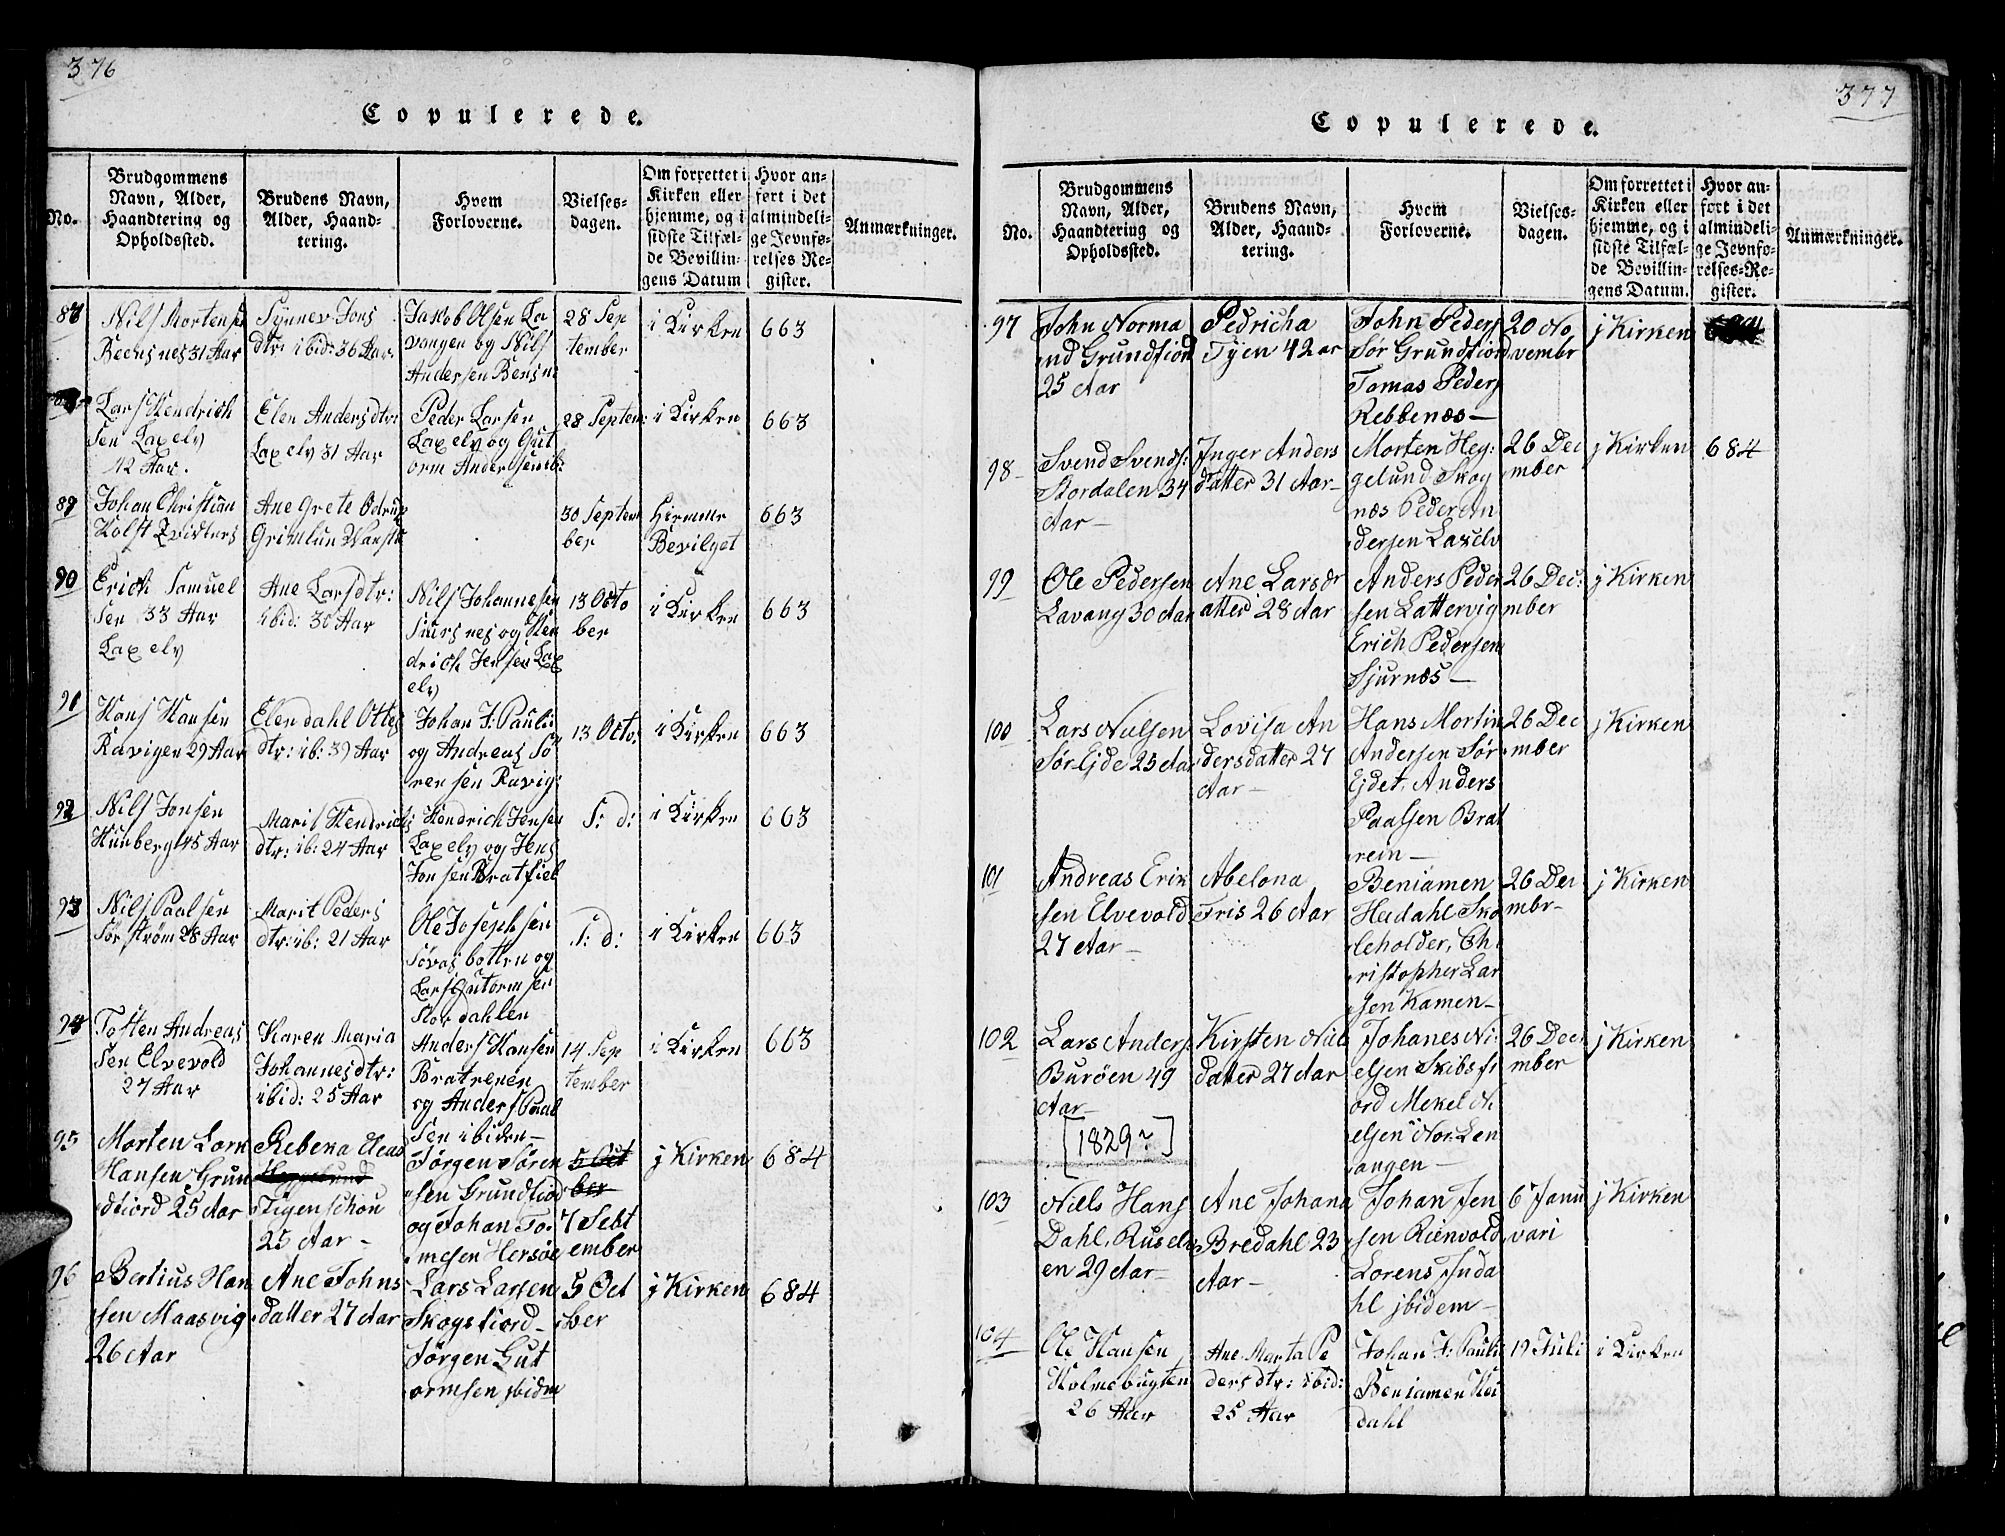 376
Copulerede.
No.
Brudgommens
Navn, Alder,
Haandtering og
Opholdssted.
Brudens Navn,
Alder, Haand-
tering.
Hvem
Forloverne.
Vielses-
dagen.
Om forrettet i
Kirken eller
hjemme, og i
sidste Tilfæl-
de Bevillin-
gens Datum
Hvor an-
ført i det
almindeli-
ge Jevnfø-
relses Re-
gister.
Anmærkninger.
87
Nils Mortensen
31 Aar
Synnev Jons
dtr: ibid: 36 Aar.
Jakob Olsen La
vangen og Nils
Andersen
28 Sep
tember
i Kirken
663
Lars Hendrich
sen Laxelv
42 Aar.
Elen Andersdtr:
Laxelv 31 Aar
Peder Larsen
Laxelv og Gut
orm Andersen ib:
28 Septem:
i Kirken
663
89
Johan Christian
Holst
Ane Grete
30 Septem
ber
Hiemme
Bevilget
663
90
Erich Samuel
sen 33 Aar
Laxelv
Ane Larsdtr:
ibid: 30 Aar
Nils Johannesen
og Hen
drich Jensen Lax
elv
13 Octo
ber
i Kirken
663
91
Hans Hansen
Ravigen 29 Aar
Elen dahl Ottes
dtr: ib: 39 Aar
Johan F: Pauli
og Andreas Sö
rensen Ravig:
13 Octo:
i Kirken
663
92
Nils Jonsen
Hunberg 45 Aar
Marit Hendrichs
dtr: ib: 24 Aar
Hendrich Jensen
Laxelv og Jens
Jonsen Bratfiel
S: d:
i Kirken
663
93
Nils Paalsen
Sörström 28 Aar
Marit Peders
dtr: ib: 21 Aar
Ole Josephsen
botten og
Lars Gutormsen
Stordahlen
S: d:
i Kirken
663
94
Tosten Andreas
sen Elvevold
27 Aar
Karen Maria
Johannesdtr:
ibid: 25 Aar
Anders Hansen
Bratrenen
og Anders Paal
sen ibiden—
14 Sep
tember
i Kirken
663
95
Morten Lorn
Hansen Grun
dfiord 25 Aar
Rebeka
Heggelund
Tigenschou
25 Aar—
Jørgen Søren
sen Grundfiord
og Johan To:
mesen Hersøe
5 Oct
ber
7 Sebt
ember
j Kirken
684
96
Bertius Han
sen Maasvig
26 Aar
Ane Johns
datter 27 Aar
Lars Larsen
Skogsfiord—
Jørgen Gut
ormsen jbidm
5 Oct
ber
j Kirken
684
377
Copulerede.
No.
Brudgommens
Navn, Alder,
Haandtering og
Opholdssted.
Brudens Navn,
Alder, Haand-
tering.
Hvem
Forloverne.
Vielses-
dagen.
Om forrettet i
Kirken eller
hjemme, og i
sidste Tilfæl-
de Bevillin-
gens Datum.
Hvor an-
ført i det
almindeli-
ge Jevnfø-
relses-Re-
gister.
Anmærkninger.
97
John Norma
nd Grundfiord
25 Aar
Pedricha
Tyen 42 ar
John Peders
Sør Grundfiord
Tomas Peders
Rebbenæs—
20 No
vembr
j Kirken
98
Svend Svends:
Stordalen 34
Aar—
Inger Anders
datter 31 Aar—
Morten Heg:
gelund Skog
næs Peder An
dersen Laxelv
26 Dec
mber
j Kirken
684
99
Ole Pedersen
Lavang 30 Aar
Ane Larsd
atter 28 Aar
Anders Peder
sen Lattervig
Erich Pedersen
Sjurnæs—
26 Dec:
mber
j Kirken
100
Lars Nielsen
Sør Ejde 25 Aar
Lovisa An
dersdatter 27
Aar—
Hans Mortin
Andersen Sør
Ejdet, Anders
Paalsen Brat
rein—
26 Dec
mber
j Kirken
101
Andreas Erik
sen Elvevold
27 Aar—
Abelona
Fris 26 Aar
Beniamen
Heidahl Sko
leholder, Ch
ristopher Lar
sen Kamen—
26 Dec
mbr—
j Kirken
102
Lars Anders
Burøen 49
Aar—
Kirsten Niel
datter 27 Aar
Johanes Ni
elsen Skibsfi
ord Mekel Ni
elsen Nor. Len
angen—
26 Dec
mber
j Kirken
[1829?]
103
Niels Hans
Dahl, Ruselv
en 29 Aar—
Ane Johana
Bredahl 23
Aar—
Johan Jen
sen Rienvold
Lorens Juda
hl jbidem—
6 Janu
vari
j Kirken
104
Ole Hansen
Holmebugten
26 Aar
Ane Marta Pe
dersdtr: ibid:
25 Aar
Johan F: Pauli
Beniamen Hei
dahl
19 Juli
i Kirken